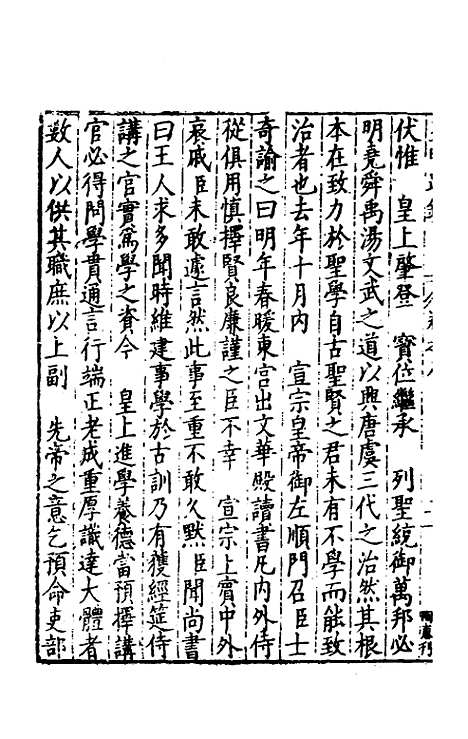 伏惟　皇上肇登　寳位繼承　列聖統御萬邦必
明堯舜禹湯文武之道以興唐虞三代之治然其根
本在致力於聖學自古聖賢之君未有不學而能致
治者也去年十月內　宣宗皇帝御左順門召臣士
奇諭之曰明年春暖東宮出文華殿讀書凡內外侍
從俱用慎擇賢良廉謹之臣不幸　宣宗上賓中外
哀戚臣未敢遽言然此事至重不敢久默臣聞尚書
曰王人求多聞時維建事學於古訓乃有獲經筵侍
講之官實爲學之資今　皇上進學養德當預擇講
官必得問學貫通言行端正老成重厚識達大體者
數人以供其職庶以上副　先帝之意乞預命吏部